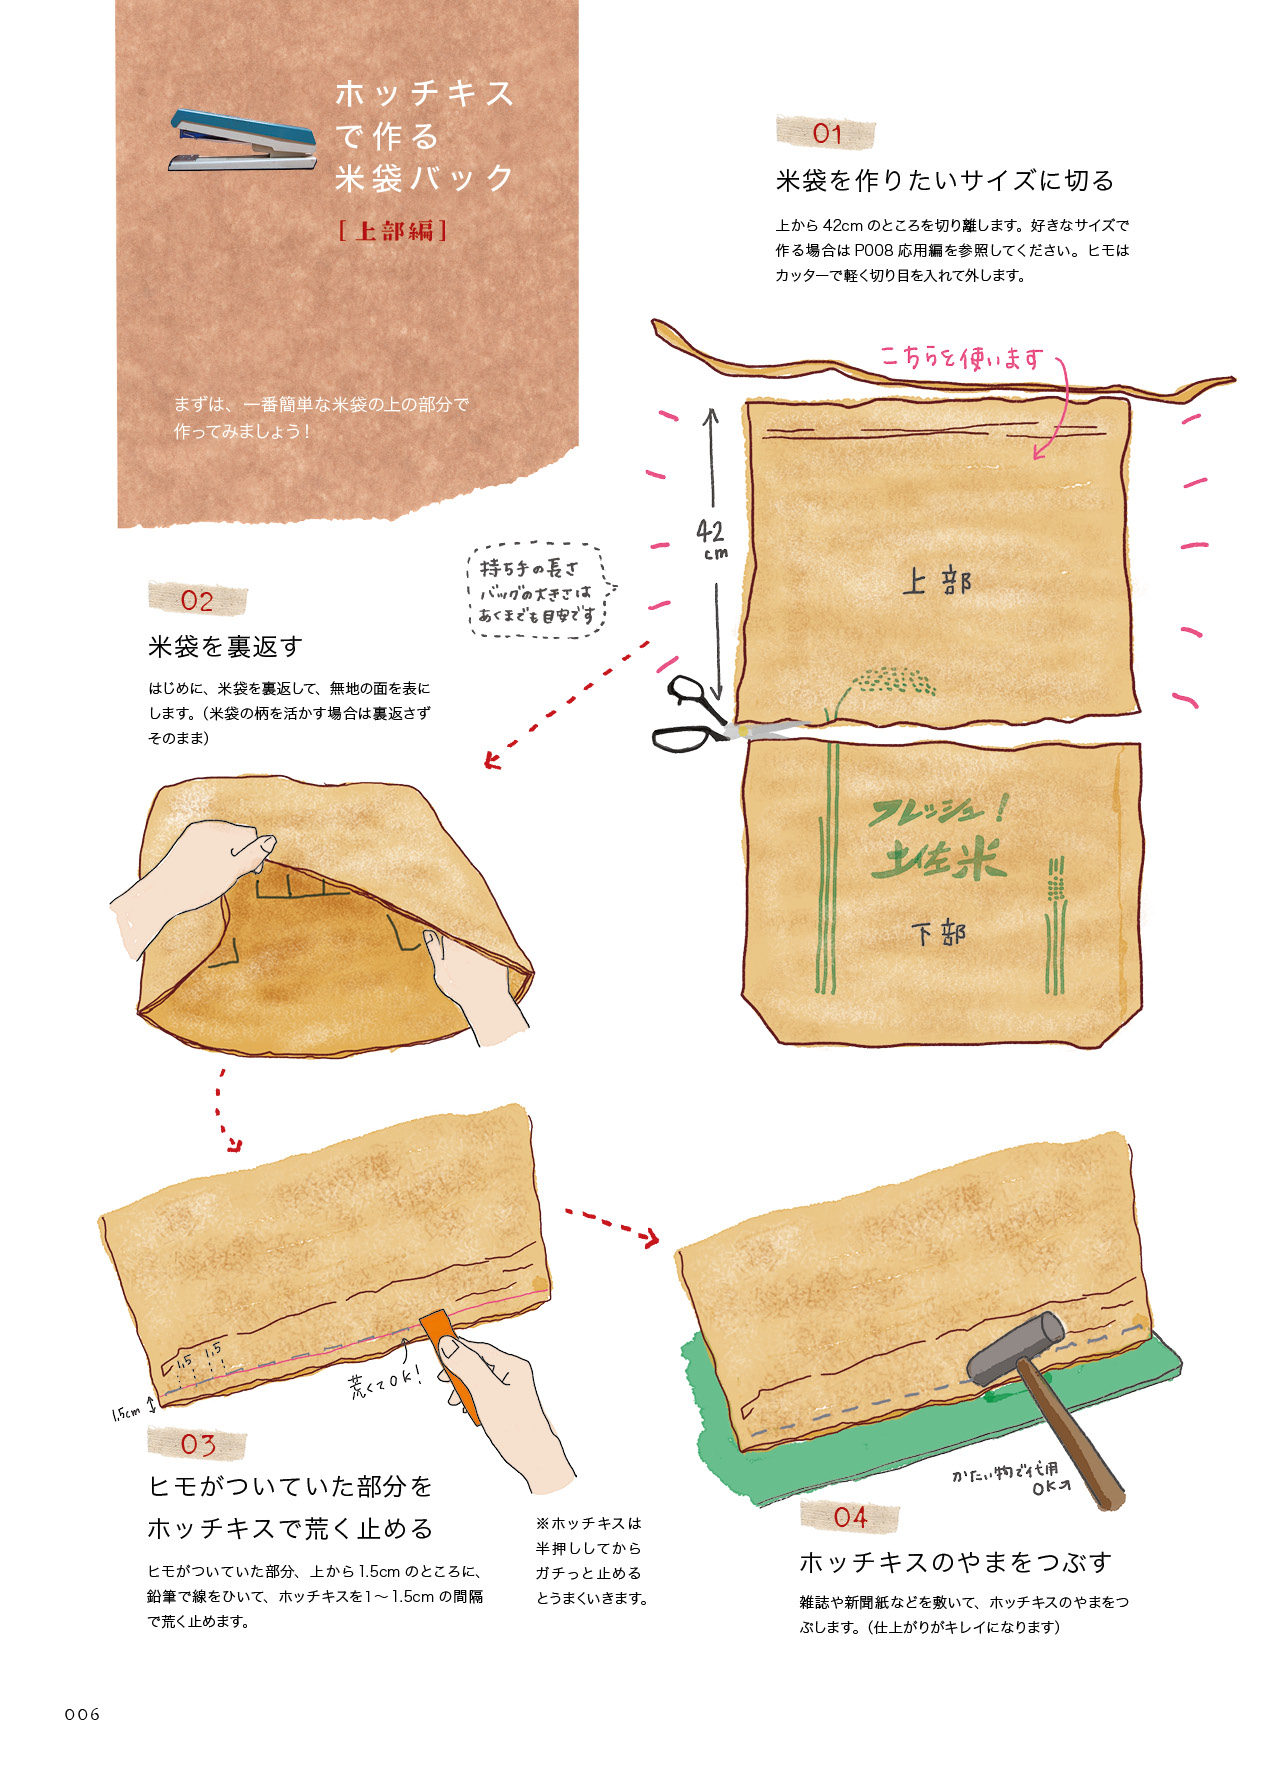 ホッチキス
で作る
米袋バック
[上部編]
まずは、一番簡単な米袋の上の部分で
作ってみましょう!
01
米袋を作りたいサイズに切る
上から 42cm のところを切り離します。好きなサイズで
作る場合は P008 応用編を参照してください。ヒモは
カッターで軽く切り目を入れて外します。
こちらを使います
42
cm
上部
持ち手の長さ
バッグの大きさは
あくまでも目安です
フレッシュ!
土佐米
下部
02
米袋を裏返す
はじめに、米袋を裏返して、無地の面を表に
します。(米袋の柄を活かす場合は裏返さず
そのまま)
1.5 1.5
1.5cm
荒くてOK!
03
ヒモがついていた部分を
ホッチキスで荒く止める
ヒモがついていた部分、上から1.5cm のところに、
鉛筆で線をひいて、ホッチキスを1〜1.5cm の間隔
で荒く止めます。
※ホッチキスは
半押ししてから
ガチっと止める
とうまくいきます。
かたい物で代用
OK
04
ホッチキスのやまをつぶす
雑誌や新聞紙などを敷いて、ホッチキスのやまをつ
ぶします。(仕上がりがキレイになります)
006